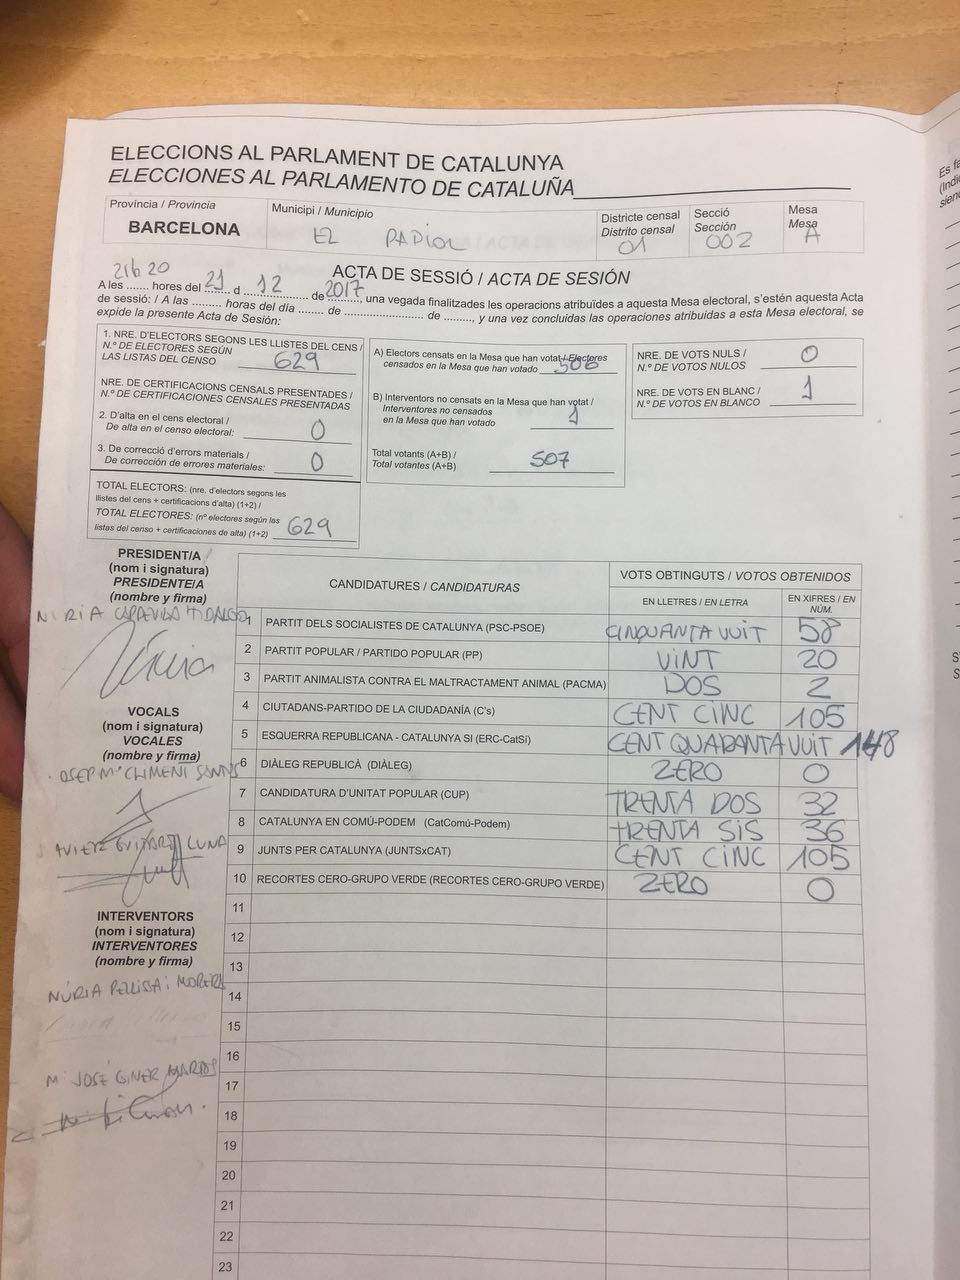 ELECCIONS AL PARLAMENT DE CATALUNYA
ELECCIONES AL PARLAMENTO DE CATALUÑA
Província / Provincia
BARCELONA
Municipi / Municipio
EL PAPIOL
Districte censal
Distrito censal
01
Secció
Sección
002
Mesa
Mesa
A
ACTA DE SESSIÓ / ACTA DE SESIÓN
A les 21h20 hores del 21 d 12 de 2017, una vegada finalitzades les operacions atribuïdes a aquesta Mesa electoral, s'estén aquesta Acta
de sessió: / A las ......... horas del día ....... de ....................... de ........., y una vez concluidas las operaciones atribuidas a esta Mesa electoral, se
expide la presente Acta de Sesión:
1. NRE. D'ELECTORS SEGONS LES LLISTES DEL CENS /
N.º DE ELECTORES SEGÚN
LAS LISTAS DEL CENSO 629
NRE. DE CERTIFICACIONS CENSALS PRESENTADES /
N.º DE CERTIFICACIONES CENSALES PRESENTADAS
2. D'alta en el cens electoral /
De alta en el censo electoral: 0
3. De correcció d'errors materials /
De corrección de errores materiales: 0
TOTAL ELECTORS: (nre. d'electors segons les
llistes del cens + certificacions d'alta) (1+2) /
TOTAL ELECTORES: (nº electores según las
listas del censo + certificaciones de alta) (1+2) 629
A) Electors censats en la Mesa que han votat / Electores
censados en la Mesa que han votado 506
B) Interventors no censats en la Mesa que han votat /
Interventores no censados
en la Mesa que han votado 1
Total votants (A+B) /
Total votantes (A+B) 507
NRE. DE VOTS NULS /
N.º DE VOTOS NULOS 0
NRE. DE VOTS EN BLANC /
N.º DE VOTOS EN BLANCO 1
PRESIDENT/A
(nom i signatura)
PRESIDENTE/A
(nombre y firma)
HIDALGO
Núria
VOCALS
(nom i signatura)
VOCALES
(nombre y firma)
JOSEP Mª CLIMENT SANS
LUNA
INTERVENTORS
(nom i signatura)
INTERVENTORES
(nombre y firma)
NÚRIA
Mª JOSÉ GINER MARTOS
CANDIDATURES / CANDIDATURAS
VOTS OBTINGUTS / VOTOS OBTENIDOS
EN LLETRES / EN LETRA
EN XIFRES / EN NÚM.
1 PARTIT DELS SOCIALISTES DE CATALUNYA (PSC-PSOE) CINQUANTA VUIT 58
2 PARTIT POPULAR / PARTIDO POPULAR (PP) VINT 20
3 PARTIT ANIMALISTA CONTRA EL MALTRACTAMENT ANIMAL (PACMA) DOS 2
4 CIUTADANS-PARTIDO DE LA CIUDADANÍA (C's) CENT CINC 105
5 ESQUERRA REPUBLICANA - CATALUNYA SI (ERC-CatSí) CENT QUARANTA VUIT 148
6 DIÀLEG REPUBLICÀ (DIÀLEG) ZERO 0
7 CANDIDATURA D'UNITAT POPULAR (CUP) TRENTA DOS 32
8 CATALUNYA EN COMÚ-PODEM (CatComú-Podem) TRENTA SIS 36
9 JUNTS PER CATALUNYA (JUNTSxCAT) CENT CINC 105
10 RECORTES CERO-GRUPO VERDE (RECORTES CERO-GRUPO VERDE) ZERO 0
11
12
13
14
15
16
17
18
19
20
21
22
23